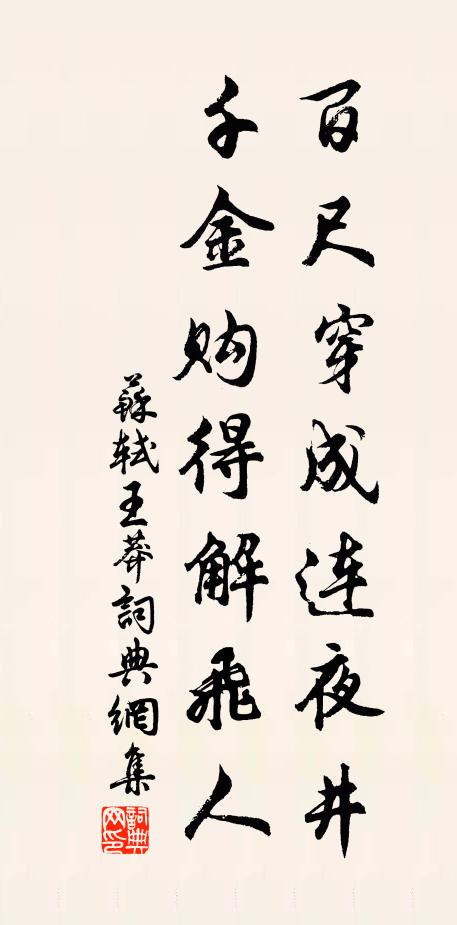 百尺穿成连夜井
千金购得解飞人
蘇轼王莽詞典網集
詞典网印